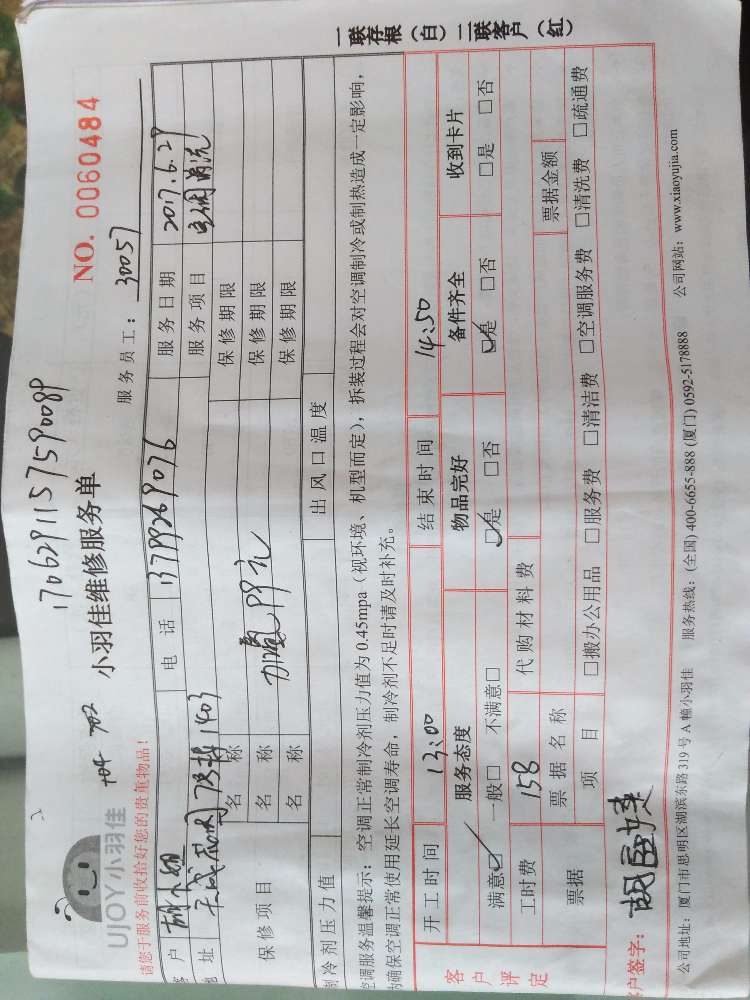 170629115759008P
UJOY小羽佳
704 702 小羽佳维修服务单
NO. 0060484
请您于服务前收拾好您的贵重物品!
服务员工: 30057
客 户 胡小姐 电 话 13799269076 服务日期 2017.6.29
地 址 1403 服务项目 空调清洗
保修项目 名 称 保修期限
名 称 加氟99元 保修期限
名 称 保修期限
制冷剂压力值 出风口温度
空调服务温馨提示:空调正常制冷剂压力值为 0.45mpa(视环境、机型而定),拆装过程会对空调制冷或制热造成一定影响,
为确保空调正常使用延长空调寿命,制冷剂不足时请及时补充。
开工时间 13:00 结束时间 14:50
客户评定
服务态度 物品完好 备件齐全 收到卡片
满意☑ 一般□ 不满意□ ☑是 □否 ☑是 □否 □是 □否
工时费 158 代购材料费
票据 票据名称 票据金额
项 目 □搬办公用品 □服务费 □清洁费 □空调服务费 □清洗费 □疏通费
客户签字:
公司地址:厦门市思明区湖滨东路 319 号 A 幢小羽佳 服务热线:(全国) 400-6655-888 (厦门) 0592-5178888 公司网站:www.xiaoyujia.com
一联存根(白)二联客户(红)